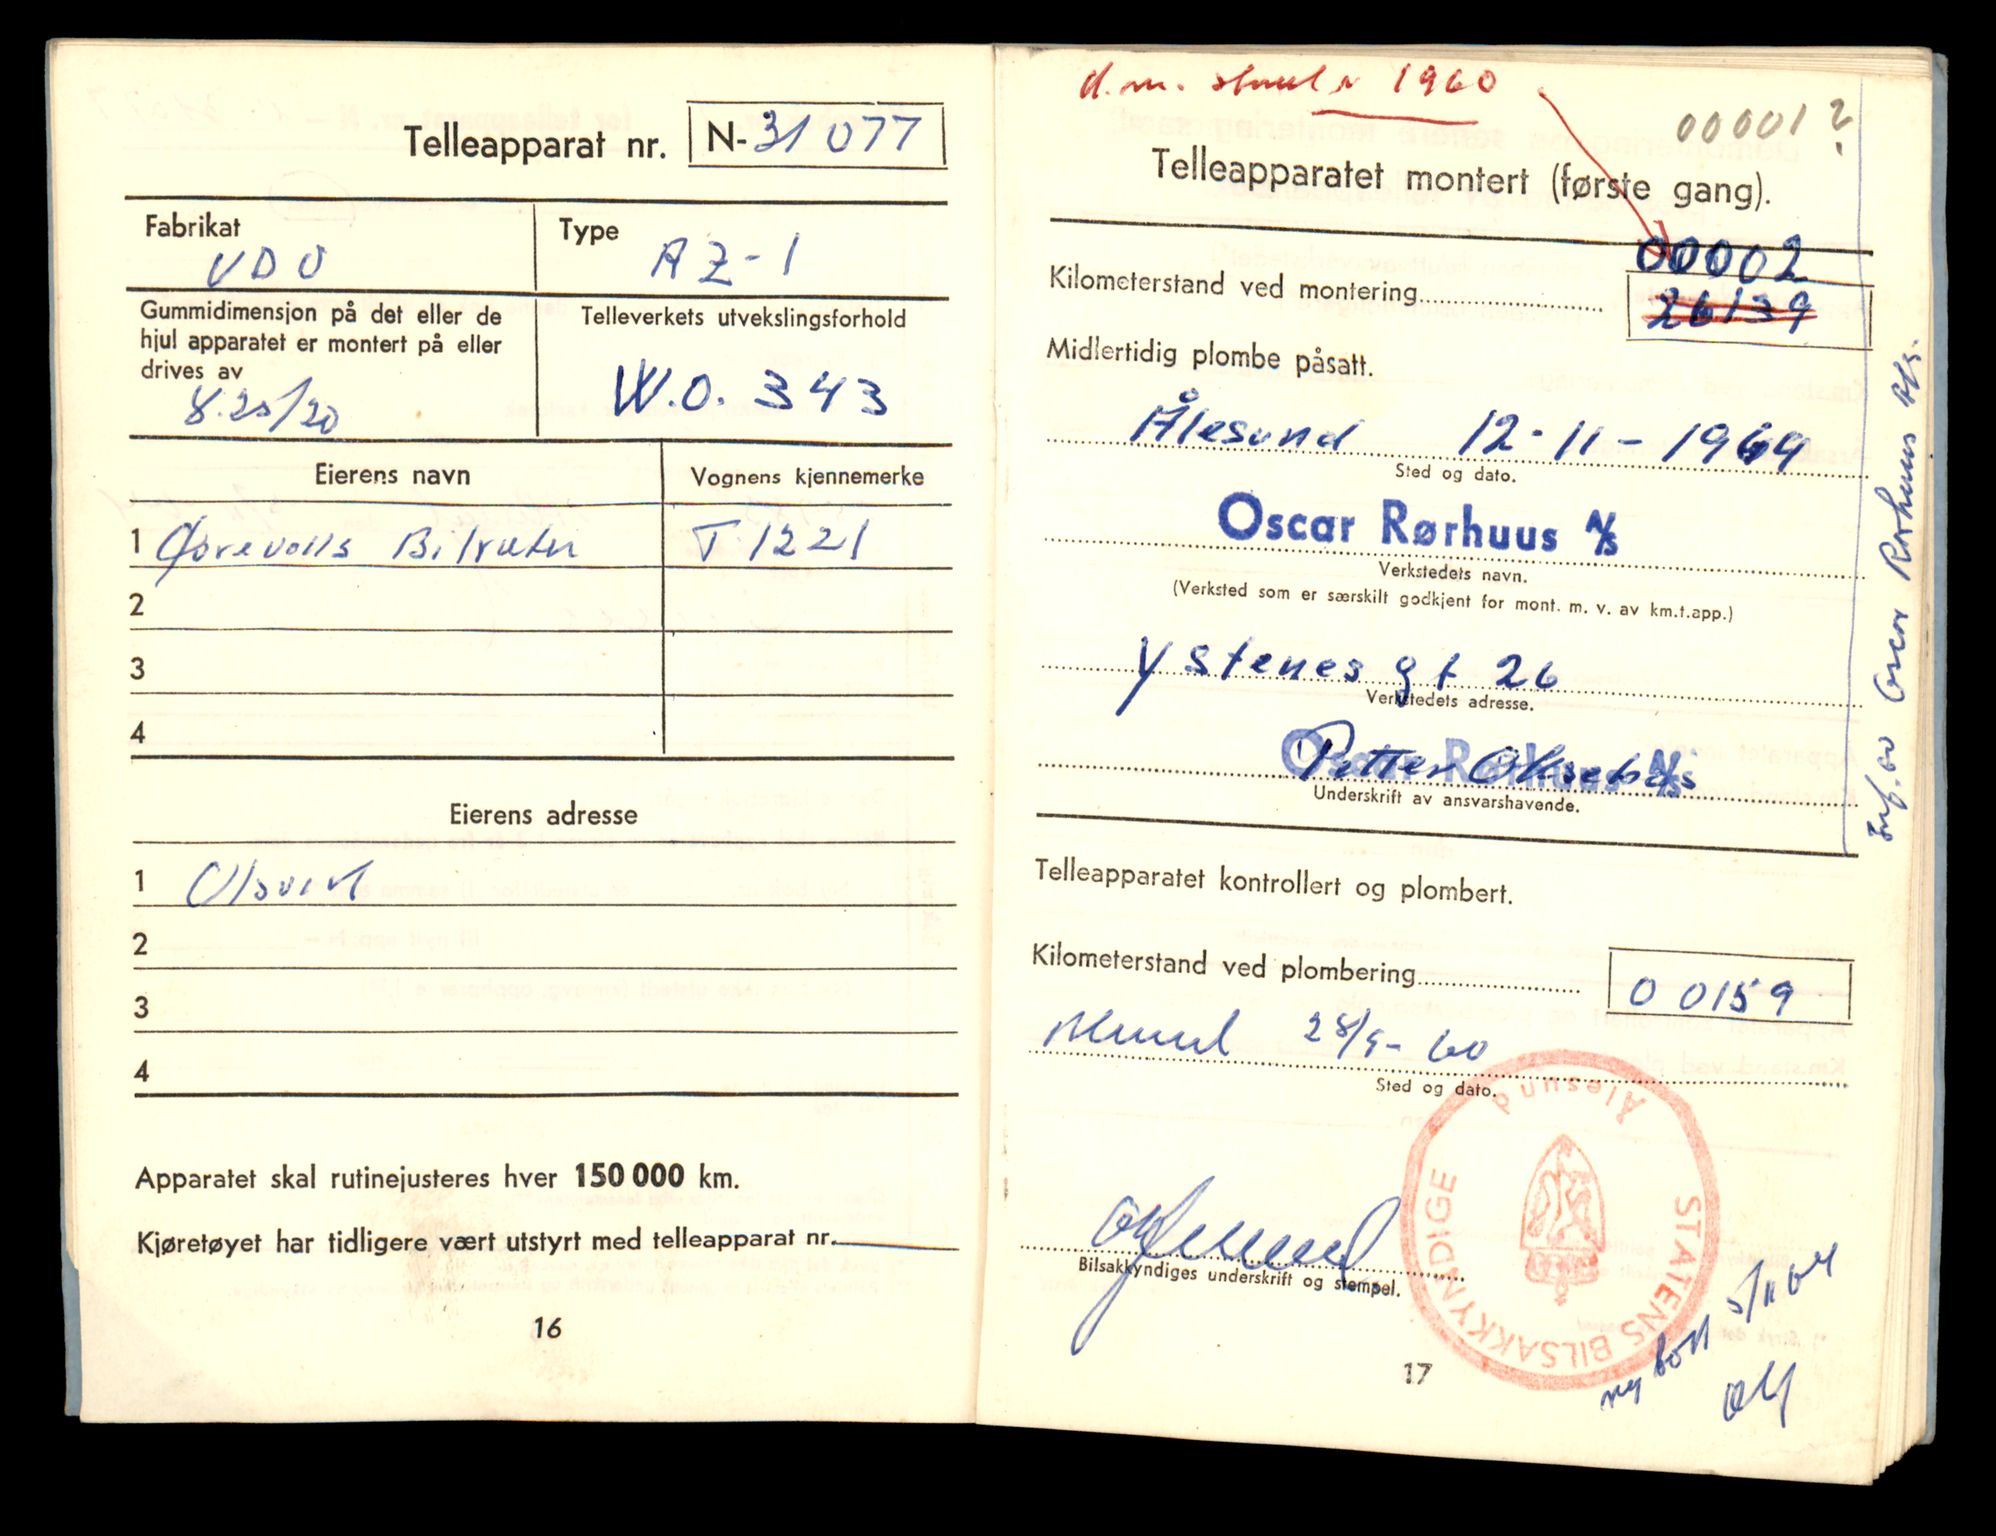 Telleapparat nr. N-31077
Fabrikat
VDO
Type
AZ-1
Gummidimensjon på det eller de
hjul apparatet er montert på eller
drives av
8.25/20
Telleverkets utvekslingsforhold
W.O. 343
Eierens navn
Vognens kjennemerke
1 Ørevolls Bilruter T 1221
2
3
4
Eierens adresse
1
2
3
4
Apparatet skal rutinejusteres hver 150 000 km.
Kjøretøyet har tidligere vært utstyrt med telleapparat nr.
16
d.m. 1960
00001?
Telleapparatet montert (første gang).
00002
Kilometerstand ved montering 26139
Midlertidig plombe påsatt.
Ålesund 12-11-1969
Sted og dato.
Oscar Rørhuus A/S
Verkstedets navn.
(Verksted som er særskilt godkjent for mont. m. v. av km.t.app.)
Ystenes gt 26
Verkstedets adresse.
Oscar Rørhuus A/S
Petter
Underskrift av ansvarshavende.
Oscar Rørhuus A/S.
Telleapparatet kontrollert og plombert.
Kilometerstand ved plombering 00159
28/9-60
Sted og dato.
Bilsakkyndiges underskrift og stempel.
STATENS BILSAKKYNDIGE
Ålesund
ny bok 5/11 64
17